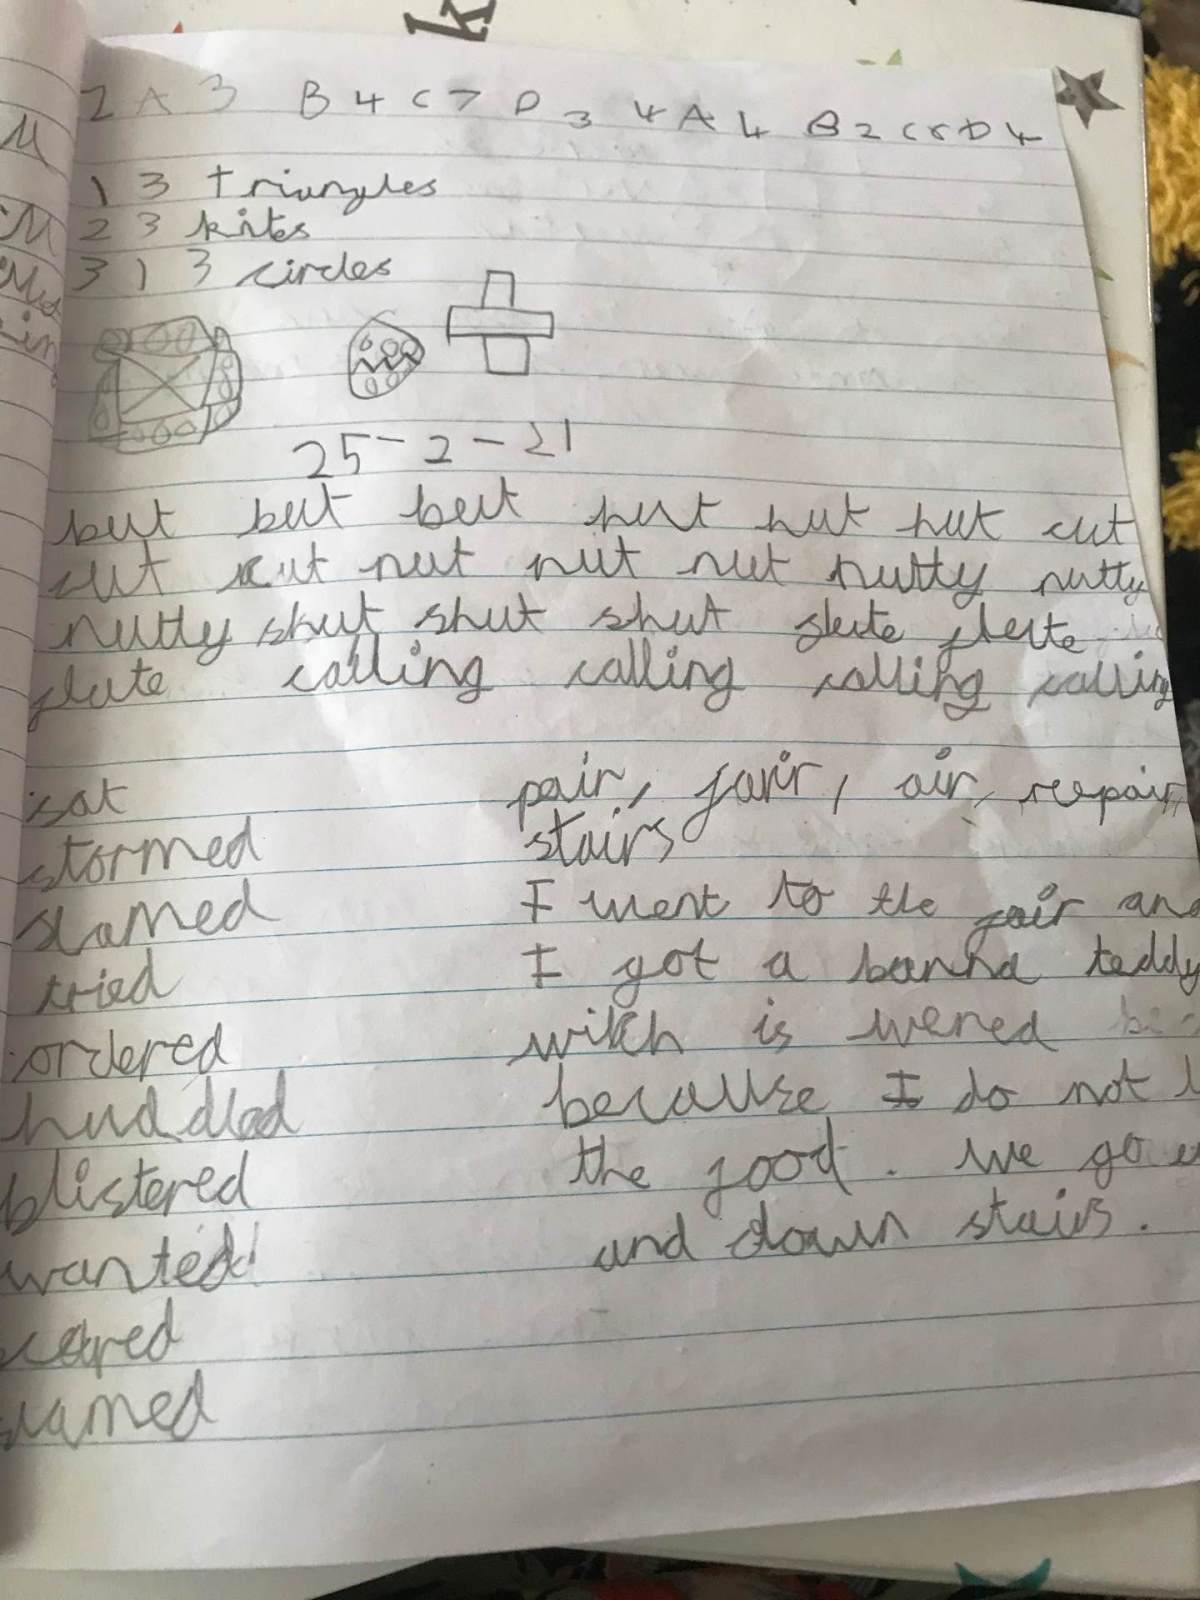 k
2 A 3 B 4 C 7 D 3 4 A 4 B 2 C 8 D 4
1 3 triangles
2 3 kites
3 1 3 circles
25-2-21
but but but hut hut hut cut
cut cut nut nut nut nutty nutty
nutty shut shut shut flute flute
flute calling calling calling calling
sat
stormed
slamed
tried
ordered
huddled
blistered
wanted
scared
slamed
pair, fair, air, repair,
stairs
I went to the fair and
I got a banna teddy
witch is wered
because I do not
the food. we go
and down stairs.